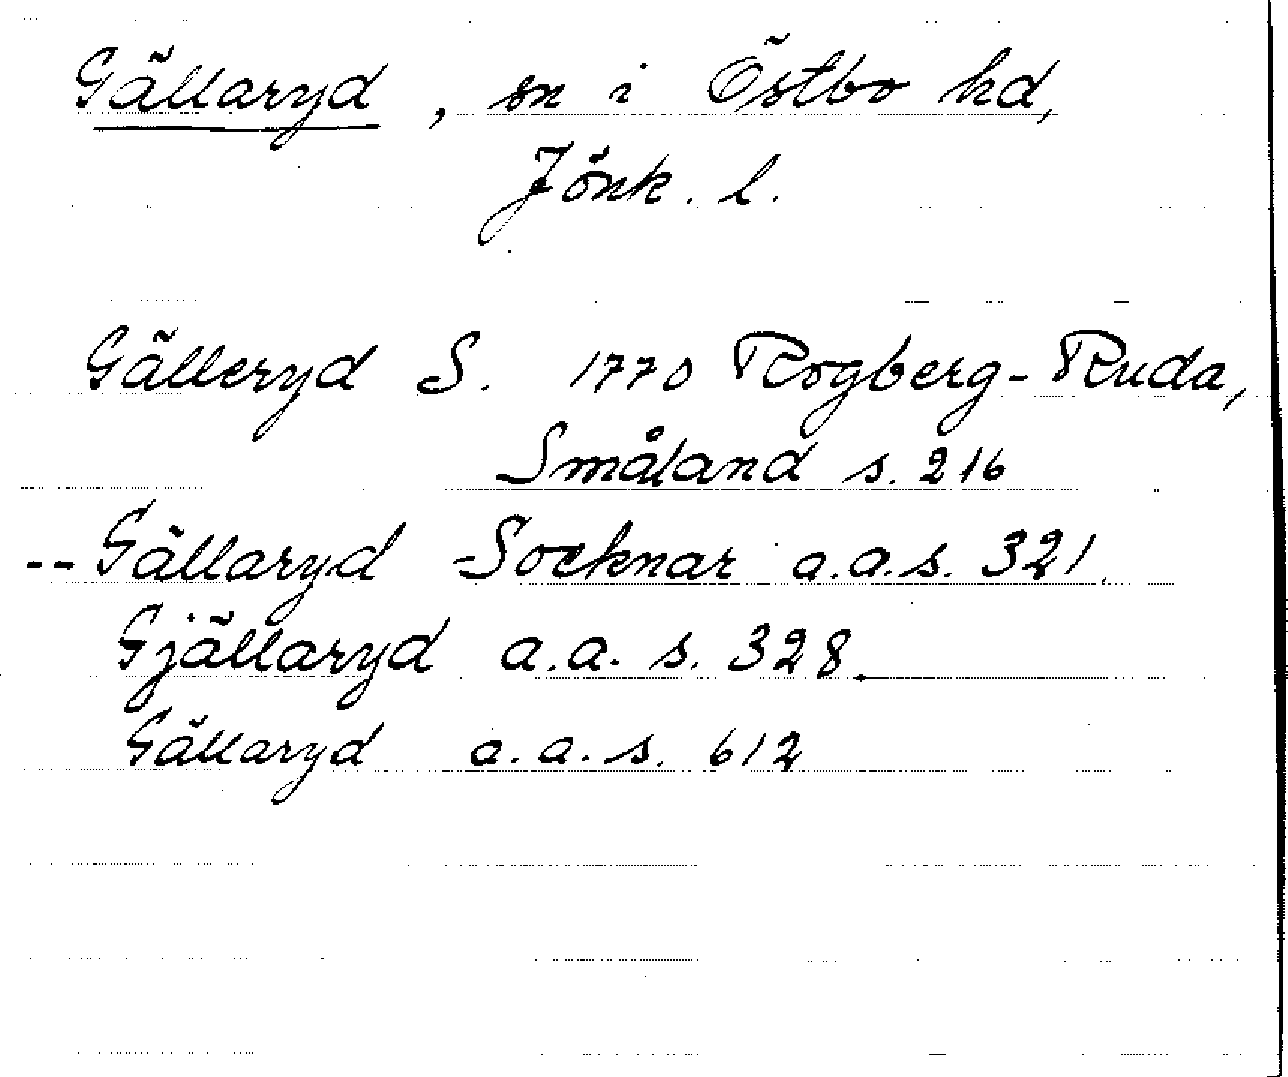 Gällaryd, sn i Östbo hd,
Jönk. l.
Gälleryd S. 1770 Rogberg-Ruda,
Småland s. 216
--Gällaryd -Socknar a.a.s. 321.
Gjällaryd a.a. s. 328.
Gällaryd a.a.s. 612